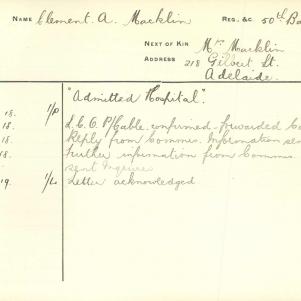 NAME Clement. A. Macklin REG. &C 50th Ba
NEXT OF KIN Mr Macklin
ADDRESS 218 Gilbert St.
Adelaide.
"Admitted Hospital".
18. 1/P L.C.O. P/Cable confirmed forwarded
18. Reply from Commis. Information
18. Further information from Commis.
sent Inquirer
19. 1/L. Letter acknowledged